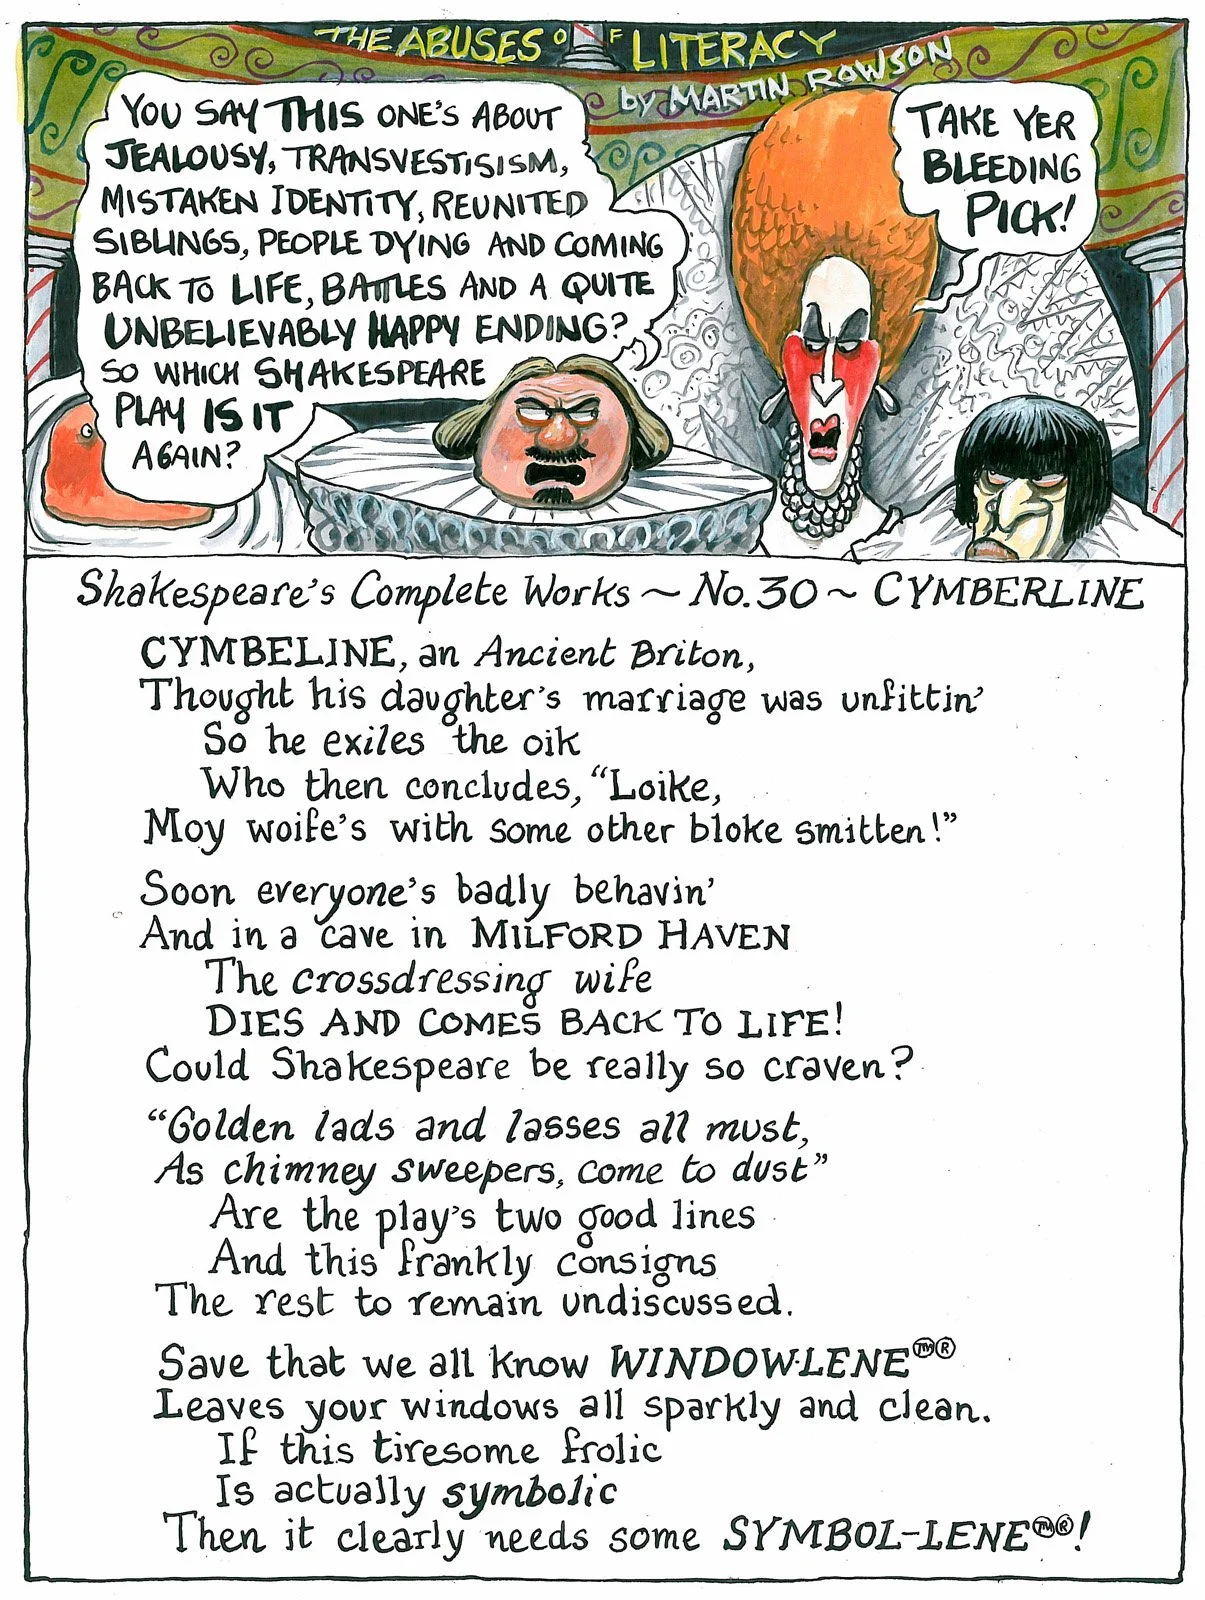 THE ABUSES OF LITERACY
by MARTIN ROWSON
YOU SAY THIS ONE'S ABOUT
JEALOUSY, TRANSVESTISISM,
MISTAKEN IDENTITY, REUNITED
SIBLINGS, PEOPLE DYING AND COMING
BACK TO LIFE, BATTLES AND A QUITE
UNBELIEVABLY HAPPY ENDING?
SO WHICH SHAKESPEARE
PLAY IS IT
AGAIN?
TAKE YER
BLEEDING
PICK!
Shakespeare's Complete Works ~ No. 30 ~ CYMBERLINE
CYMBELINE, an Ancient Briton,
Thought his daughter's marriage was unfittin'
So he exiles the oik
Who then concludes, “Loike,
Moy woife's with some other bloke smitten!”
Soon everyone's badly behavin'
And in a cave in MILFORD HAVEN
The crossdressing wife
DIES AND COMES BACK TO LIFE!
Could Shakespeare be really so craven?
“Golden lads and lasses all must,
As chimney sweepers, come to dust”
Are the play's two good lines
And this frankly consigns
The rest to remain undiscussed.
Save that we all know WINDOW-LENE™®
Leaves your windows all sparkly and clean.
If this tiresome frolic
Is actually symbolic
Then it clearly needs some SYMBOL-LENE™®!